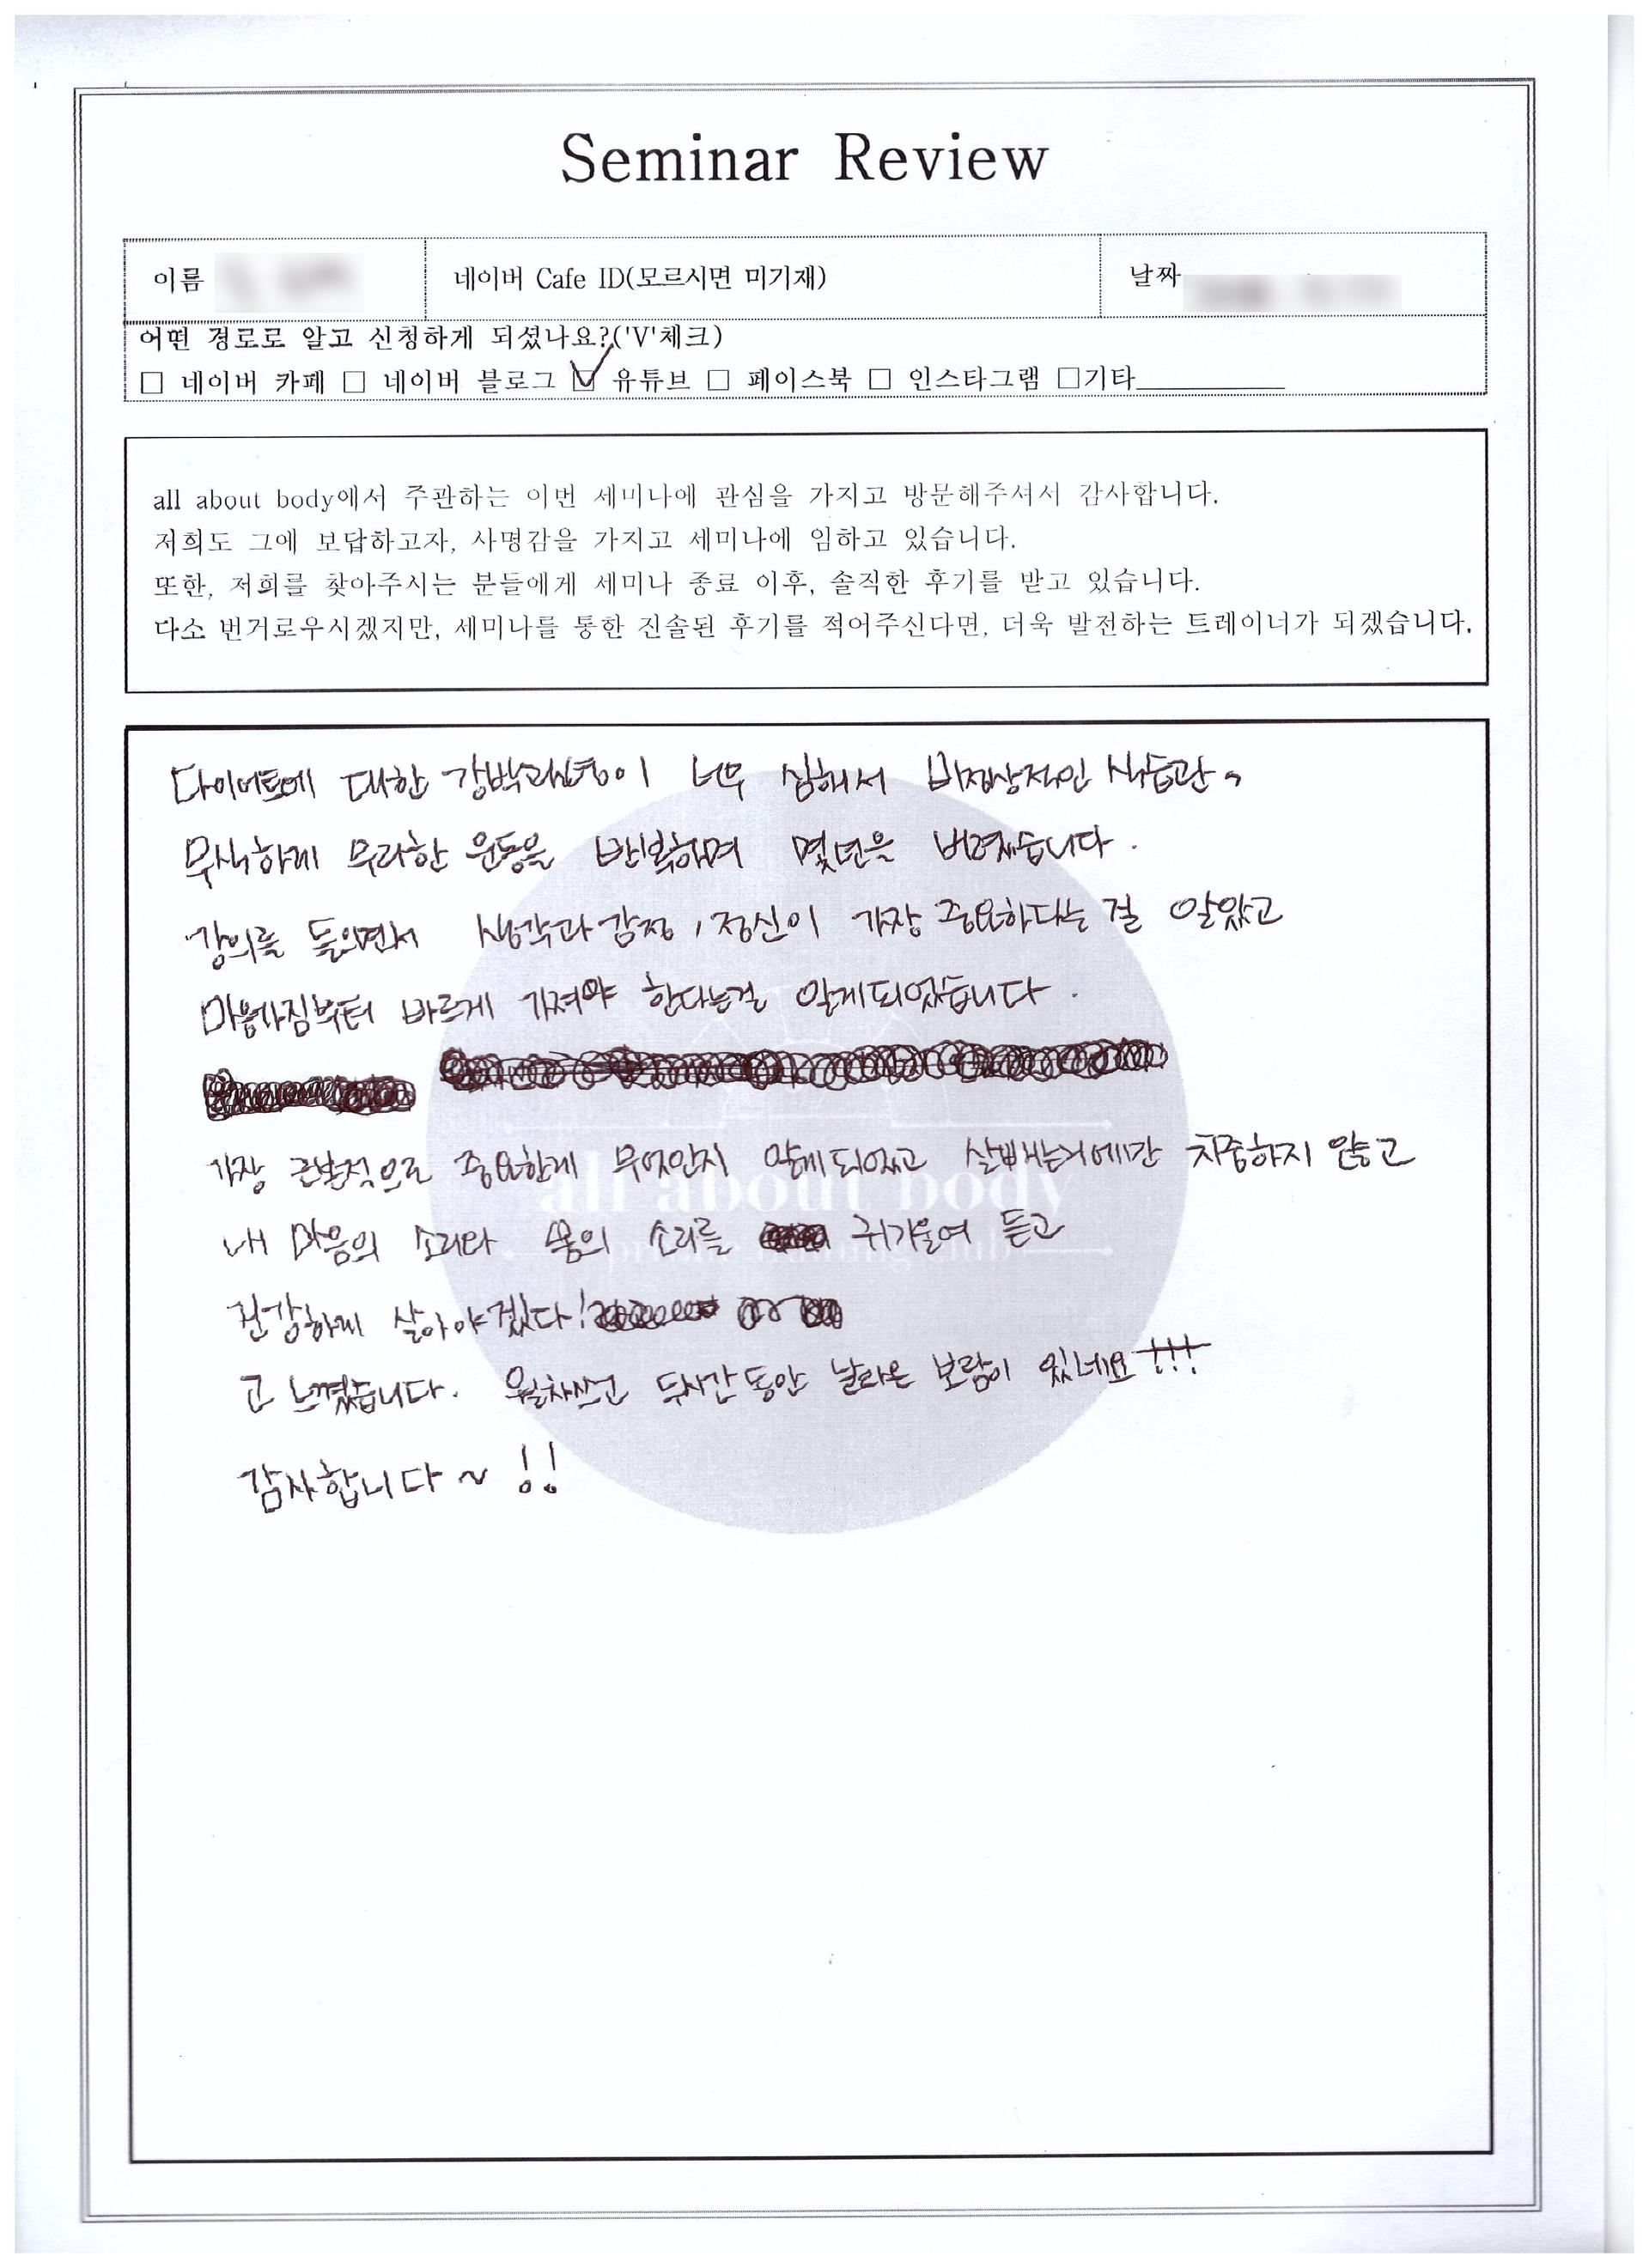 Seminar Review
이름
네이버 Cafe ID(모르시면 미기재)
날짜
어떤 경로로 알고 신청하게 되셨나요?('V'체크)
□ 네이버 카페 □ 네이버 블로그 ☑ 유튜브 □ 페이스북 □ 인스타그램 □기타
all about body에서 주관하는 이번 세미나에 관심을 가지고 방문해주셔서 감사합니다.
저희도 그에 보답하고자, 사명감을 가지고 세미나에 임하고 있습니다.
또한, 저희를 찾아주시는 분들에게 세미나 종료 이후, 솔직한 후기를 받고 있습니다.
다소 번거로우시겠지만, 세미나를 통한 진솔된 후기를 적어주신다면, 더욱 발전하는 트레이너가 되겠습니다.
다이어트에 대한 강박관념이 너무 심해서 비정상적인 식습관,
무식하게 무리한 운동을 반복하며 몇년을 버렸습니다.
강의를 들으면서 생각과 감정, 정신이 가장 중요하다는 걸 알았고
마음가짐부터 바르게 가져야 한다는걸 알게되었습니다.
가장 근본적으로 중요한게 무엇인지 알게되었고 살빼는거에만 치중하지 않고
내 마음의 소리와 몸의 소리를 귀기울여 듣고
건강하게 살아야겠다!
고 느꼈습니다. 월차쓰고 두시간 동안 날라온 보람이 있네요!!!
감사합니다~!!
all about body